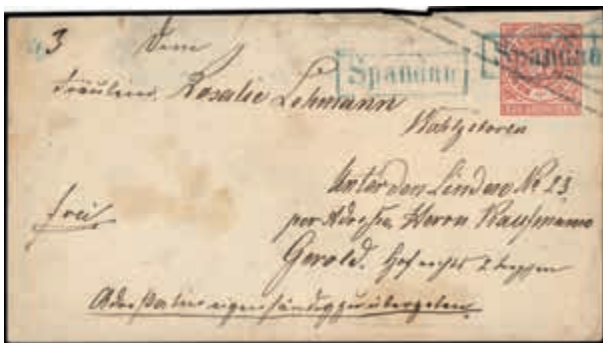 3 Dem
Spandau Spandau
Fräulein Rosalie Lehmann
Wohlgeboren
Unter den Linden No 23
per Adresse Herrn Kaufmann
frei
Gerold. Hof rechts 2 Treppen
eigenhändig zu übergeben.